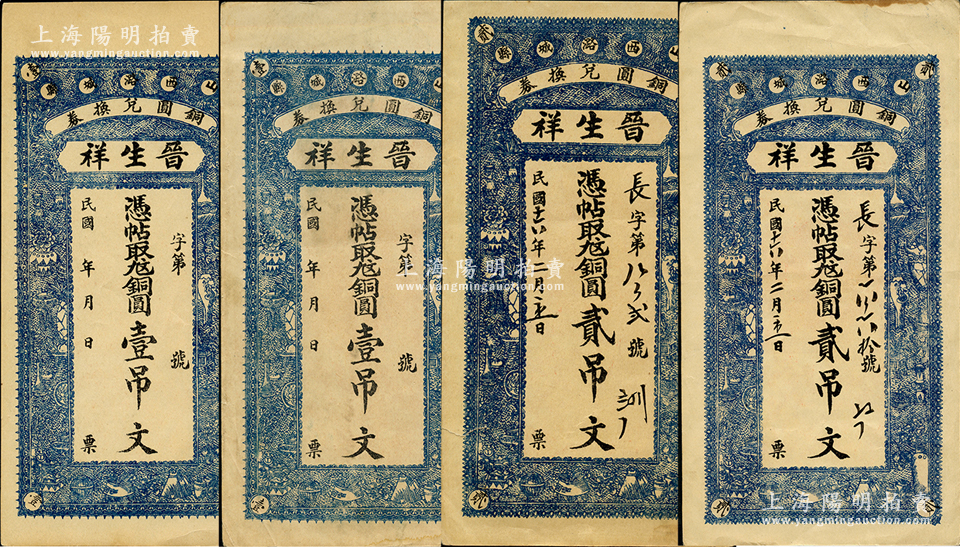 上海陽明拍賣
www.yangmingauction.com
壹
西潞城縣
銅圓兌換券
晉生祥
字第 號
憑帖取兌銅圓壹吊文
民國 年 月 日 票
壹
西潞城縣
銅圓兌換券
晉生祥
字第 號
憑帖取兌銅圓壹吊文
民國 年 月 日 票
貳
西潞城縣
銅圓兌換券
晉生祥
長字第 號
憑帖取兌銅圓貳吊文
民國十八年二月 日 票
貳
山西潞城縣
銅圓兌換券
晉生祥
長字第 號
憑帖取兌銅圓貳吊文
民國十八年二月 日 票
上海陽明拍賣
www.yangmingauction.com
上海陽明拍賣
www.yangmingauction.com